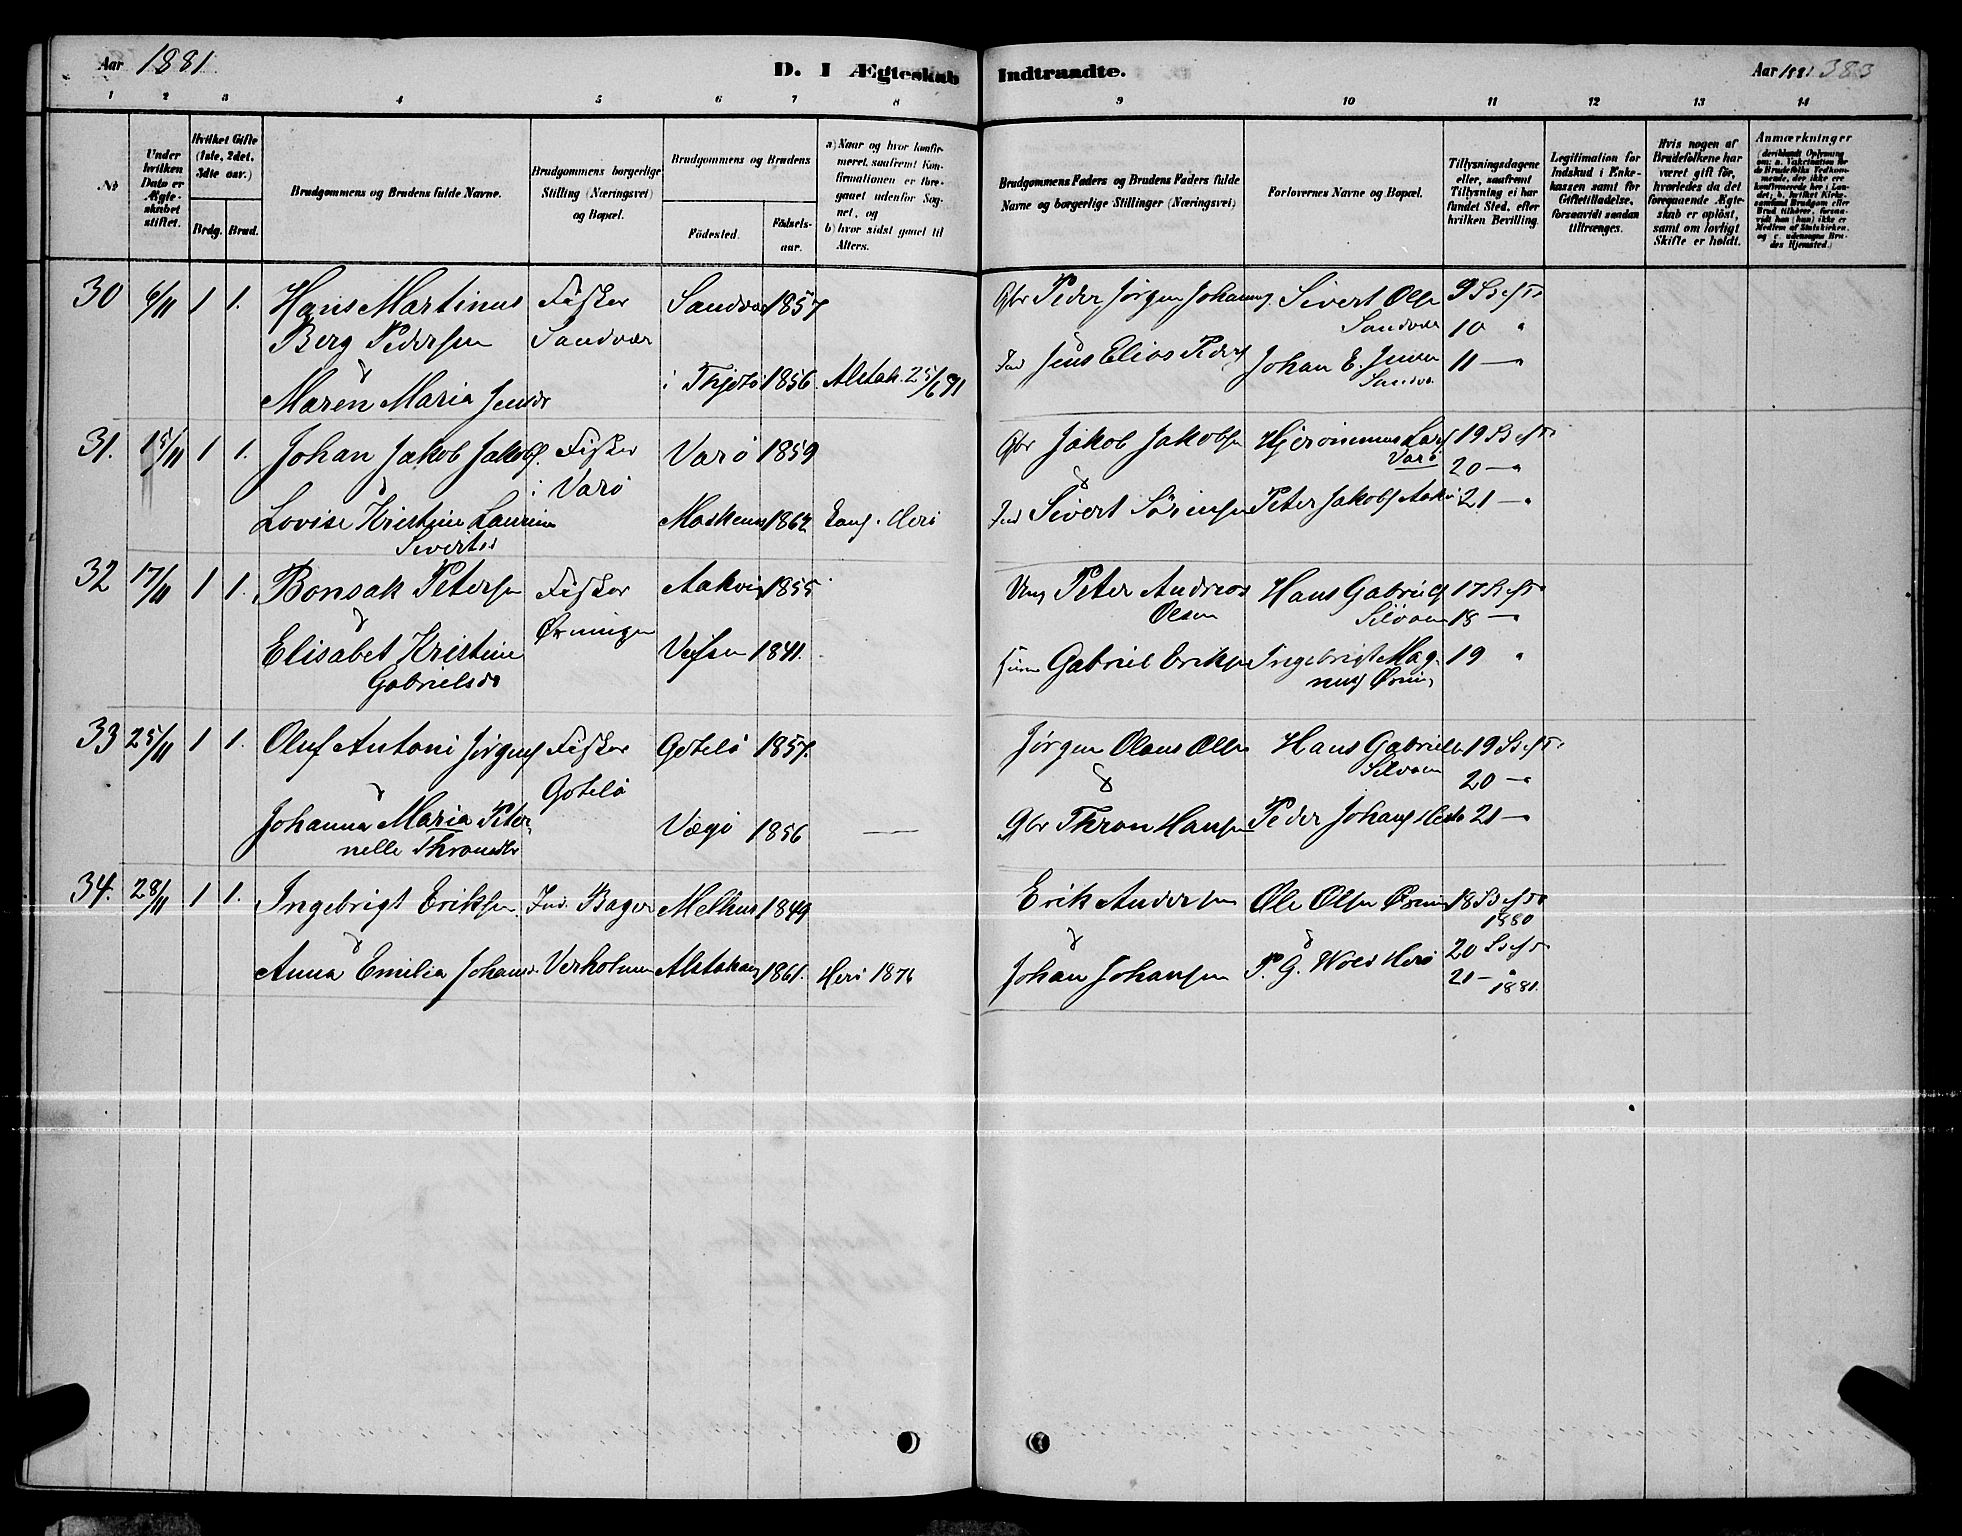 Aar 1881
D. I Ægteskab Indtraadte.
Aar 1881 383
1 2 3 4 5 6 7 8 9 10 11 12 13 14
No
Under hvilken Dato er Ægteskabet stiftet.
Hvilket Gifte (1ste, 2det, 3die osv.)
Brdg. Brud.
Brudgommens og Brudens fulde Navne.
Brudgommens borgerlige Stilling (Næringsvei) og Bopæl.
Brudgommens og Brudens
Fødested. Fødselsaar.
a) Naar og hvor konfirmeret, saafremt Konfirmationen er foregaaet udenfor Sognet, og
b) hvor sidst gaaet til Alters.
Brudgommens Faders og Brudens Faders fulde Navne og borgerlige Stillinger (Næringsvei)
Forlovernes Navne og Bopæl.
Tillysningsdagene eller, saafremt Tillysning ei har fundet Sted, efter hvilken Bevilling.
Legitimation for Indskud i Enkekassen samt for Giftetilladelse, forsaavidt saadan tiltrænges.
Hvis nogen af Brudefolkene har været gift før, hvorledes da det foregaaende Ægteskab er opløst, samt om lovligt Skifte er holdt.
Anmærkninger
30 6/11 1 1. Hans Martinus Fisker Sandvær 1857 Gbr Peder Jørgen Johan Sivert Olsen 9 S ef Tr
Berg Pedersen Sandvær Sandvær 10 "
&
Maren Maria Jensdr i Thjøtø 1856 Alstah. 25/6 71 Ind Jens Elias Peders Johan E. Jensen 11 — "
31. 15/11 1 1. Johan Jakob Jakobs. Fisker Varø 1859 Gbr Jakob Jakobsen Hjeronimus Lars 19 S ef Tr
& i Varø & Varø 20 — "
Lovise Kristine Laurine Moskenes 1862 Herø Ind Sivert Sørensen Peter Jakobs 21 — "
Sivertsdr
32 17/11 1 1. Bonsak Petersen Fisker Aakvig 1855 Peter Andreas Hans Gabriels 17 S ef Tr
& Øxningen Olsen Silvaen 18 —
Elisabet Kristine Vefsen 1841. Gabriel Eriksen Ingebrigt Mag- 19 "
Gabrielsdr nus
33 25/11 1 1. Oluf Antoni Jørgens Fisker Gotslø 1857. Jørgen Olaus Olsen Hans Gabriels 19 S ef Tr
& Gotslø & Silvaen 20 — "
Johanna Maria Peter- Vægø 1856 — Gbr Thron Hansen Peder Johans 21 — "
nelle Thronsdr
34. 28/11 1 1. Ingebrigt Eriksen Ind. Bager Melhus 1849 Erik Andersen Ole Olsen 18 S ef Tr
1880
& & &
Anna Emilia Johansd. Verholmen Alstahaug 1861. Herø 1876 Johan Johansen P. G. Wold Herø 20 S ef Tr
21 — " 1881.